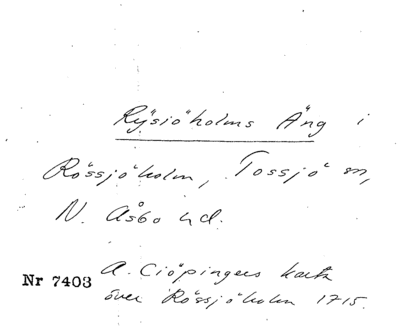 Rÿsiöholms Äng i
Rössjöholm, Tossjö sn,
N. Åsbo hd.
Nr 7403 A. Ciöpingers karta
över Rössjöholm 1715.